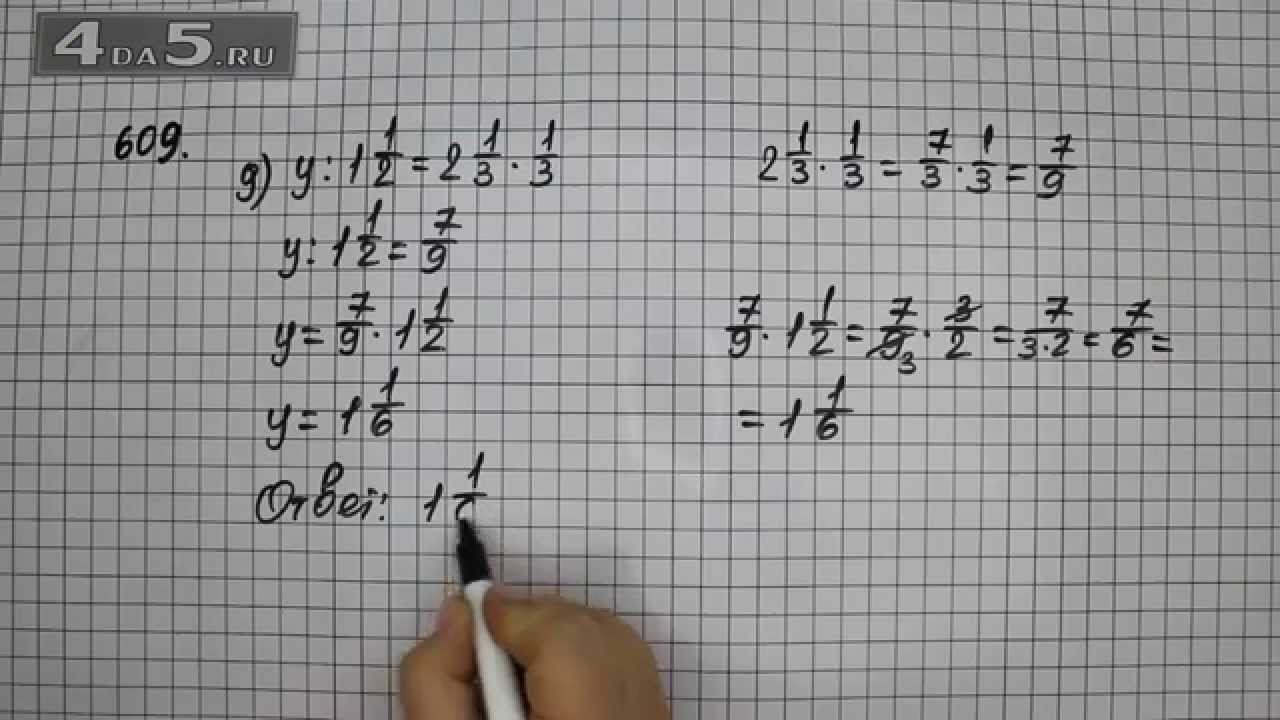 4DA5.RU
609.
д) y : 1 1/2 = 2 1/3 · 1/3
y : 1 1/2 = 7/9
y = 7/9 · 1 1/2
y = 1 1/6
Ответ: 1 1/
2 1/3 · 1/3 = 7/3 · 1/3 = 7/9
7/9 · 1 1/2 = 7/9 3 · 3/2 = 7/3·2 = 7/6 =
= 1 1/6